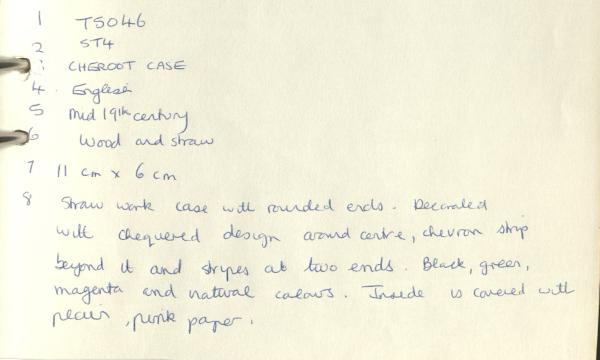 1 TS046
2 ST4
3 CHEROOT CASE
4. English
5 Mid 19th century
6 Wood and straw
7 11 cm x 6 cm
8 Straw work case with rounded ends. Decorated
with chequered design around centre, chevron strip
beyond it and stripes at two ends. Black, green,
magenta and natural colours. Inside is covered with
, pink paper.